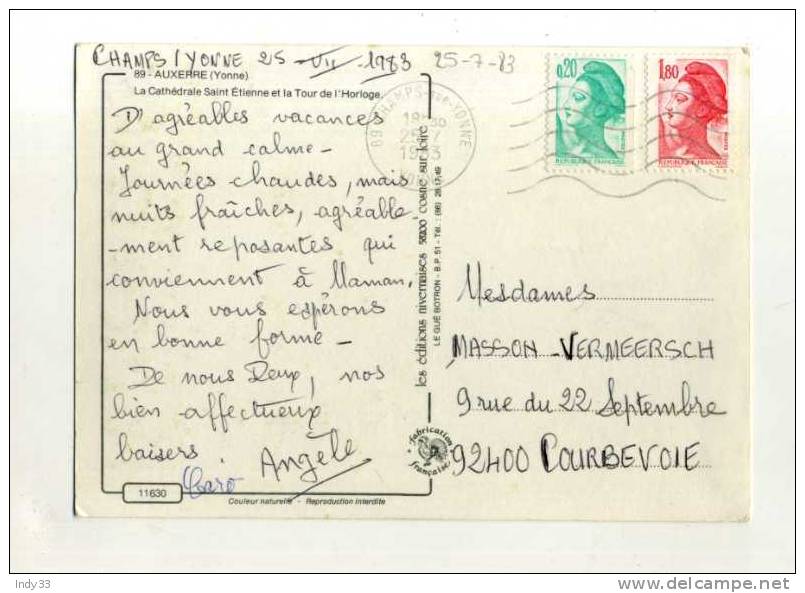 CHAMPS/YONNE 25-VII-1983 25-7-83
89 - AUXERRE (Yonne)
La Cathédrale Saint Étienne et la Tour de l'Horloge.
D'agréables vacances
au grand calme -
Journées chaudes, mais
nuits fraîches, agréable-
-ment reposantes qui
conviennent à Maman.
Nous vous espérons
en bonne forme -
De nous Deux, nos
bien affectueux
baisers.
Angèle
Caro
11630
Couleur naturelle - Reproduction interdite
les éditions nivernaises 58200 cosne sur loire
LE GUÉ BOTRON - B.P. 51 - Tél.: (86) 28.17.49
fabrication
française
89 CHAMPS-sur-YONNE
18H30
25-7
1983
0,20
REPUBLIQUE FRANÇAISE
1,80
REPUBLIQUE FRANÇAISE
Mesdames
MASSON-VERMEERSCH
9 rue du 22 Septembre
92400 COURBEVOIE
Indy33
delcampe.net